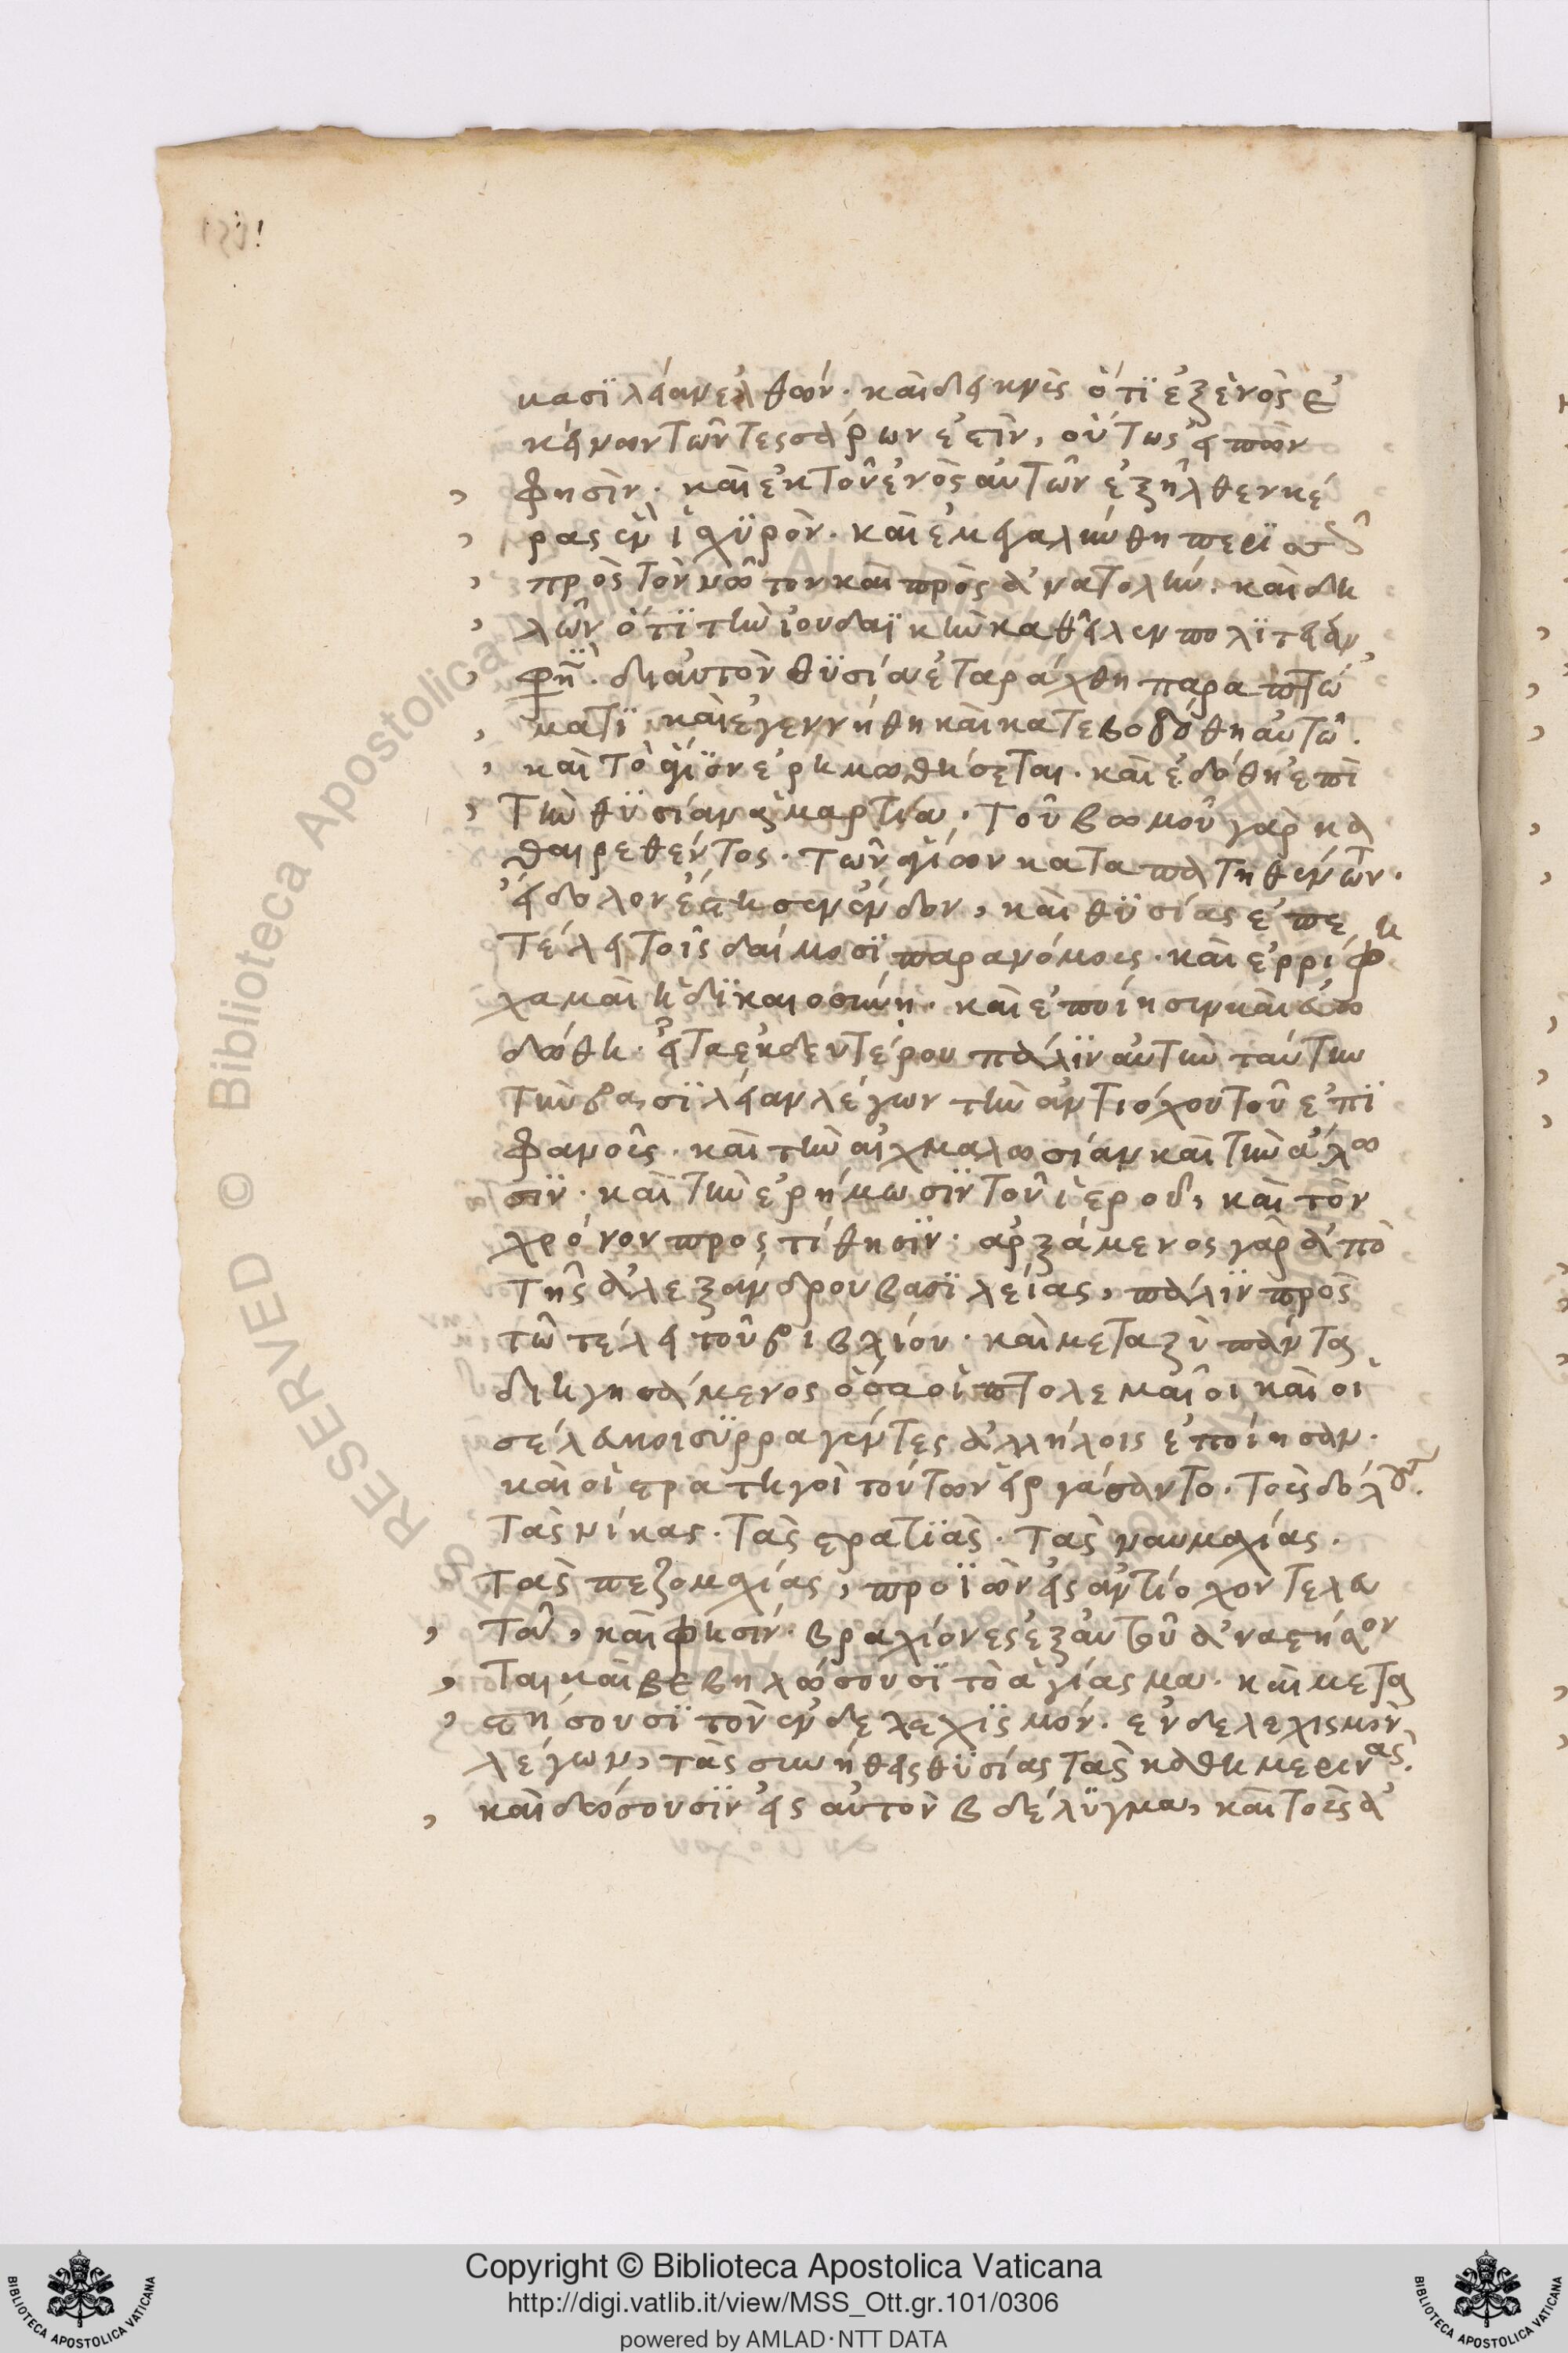 κασϊλείαν ἐλθών. καὶ δεικνὺς ὅτϊ ἐξ ἑνὸς ἐ
κείνων τῶν τεσσάρων ἐστὶν, οὕτως εἰπὼν
φησὶν. καὶ ἐκ τοῦ ἑνὸς αὐτῶν ἐξῆλθεν κέ
ρας ἓν ἰσχϋρὸν. καὶ ἐμεγαλύνθη περϊσσῶ
πρὸς τὸν νῶτον καὶ πρὸς ἀνατολήν. καὶ δη
λῶν ὅτϊ τὴν ἰουδαϊκὴν καθεῖλεν πολϊτείαν,
φησϊ. δι αὐτὸν θϋσία ἐταράχθη παραπτώ
ματϊ. καὶ ἐγεννήθη καὶ κατεβοδόθη αὐτῶ.
καὶ τὸ ἅγϊον ἐρημωθήσεται. καὶ ἐδόθη ἐπὶ
τὴν θϋσίαν ἁμαρτία. τοῦ βωμοῦ γὰρ κα
θαιρεθέντος. τῶν ἁγίων καταπατηθέντων.
εἴδολον ἔστησεν ἔνδον, καὶ θϋσίας ἐπε
τέλει τοῖς δαίμοσϊ παρανόμοις. καὶ ἐρρίφη
χαμαὶ ἡ δϊκαιοσύνη. καὶ ἐποίησεν καὶ εὐω
δώθη. εἶτα ἐκ δευτέρου πάλϊν αὐτὴν ταύτην
τὴν βασϊλείαν λέγων τὴν ἀντιόχου τοῦ ἐπϊ
φανοῖς. καὶ τὴν αἰχμαλωσίαν καὶ τὴν ἅλω
σϊν. καὶ τὴν ἐρήμωσϊν τοῦ ἱεροῦ, καὶ τὸν
χρόνον προςτίθησϊν. ἀρξάμενος γὰρ ἀπὸ
τῆς ἀλεξάνδρου βασϊλείας, πάλϊν πρὸς
τῶ τέλει τοῦ βιβλίου. καὶ μεταξὺ πάντα
διηγησάμενος ὅσα οἱ πτολεμαῖοι καὶ οἱ
σέλευκοι σϋρραγέντες ἀλλήλοις ἐποίησαν.
καὶ οἱ στρατηγοὶ τούτων εἰργάσαντο. τοὺς δόλους.
τὰς νίκας. τὰς στρατϊὰς. τὰς ναυμαχίας.
τὰς πεζομαχίας, προϊὼν εἰς ἀντίοχον τελευ
τᾶ, καὶ φησίν. βραχίονες ἐξ αὐτοῦ ἀναστήσον
ται καὶ βεβηλώσουσϊ τὸ ἁγίασμα. καὶ μετα
στήσουσϊ τὸν ἐνδελεχϊσμόν. ἐνδελεχισμὸν
λέγων, τὰς συνήθεις θϋσίας τὰς καθημερινὰς.
καὶ δώσουσϊν εἰς αὐτὸν βδέλϋγμα, καὶ τοὺς ἀ
Copyright © Biblioteca Apostolica Vaticana
http://digi.vatlib.it/view/MSS_Ott.gr.101/0306
powered by AMLAD·NTT DATA